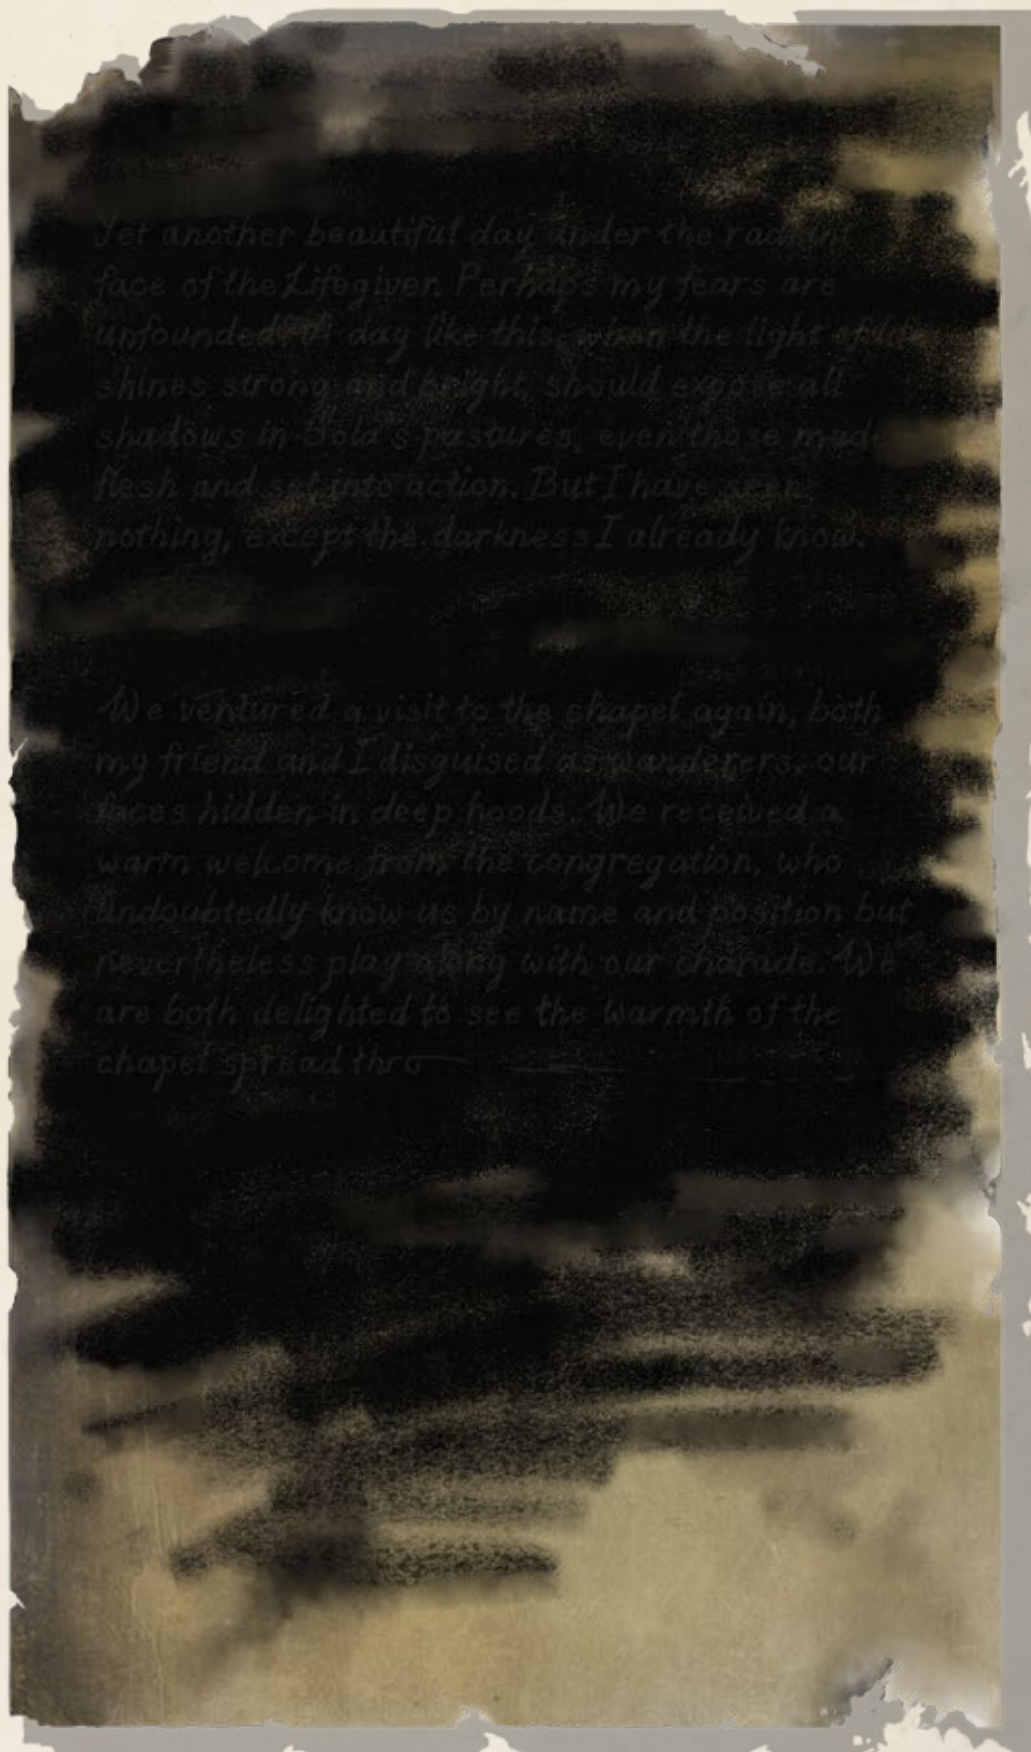 Yet another beautiful day under the radiant
face of the Lifegiver. Perhaps my fears are
unfounded? A day like this, when the light of life
shines strong and bright, should expose all
shadows in Sola's pastures, even those made
flesh and set into action. But I have seen
nothing, except the darkness I already know.
We ventured a visit to the chapel again, both
my friend and I disguised as wanderers, our
faces hidden in deep hoods. We received a
warm welcome from the congregation, who
undoubtedly know us by name and position but
nevertheless play along with our charade. We
are both delighted to see the warmth of the
chapel spread thro